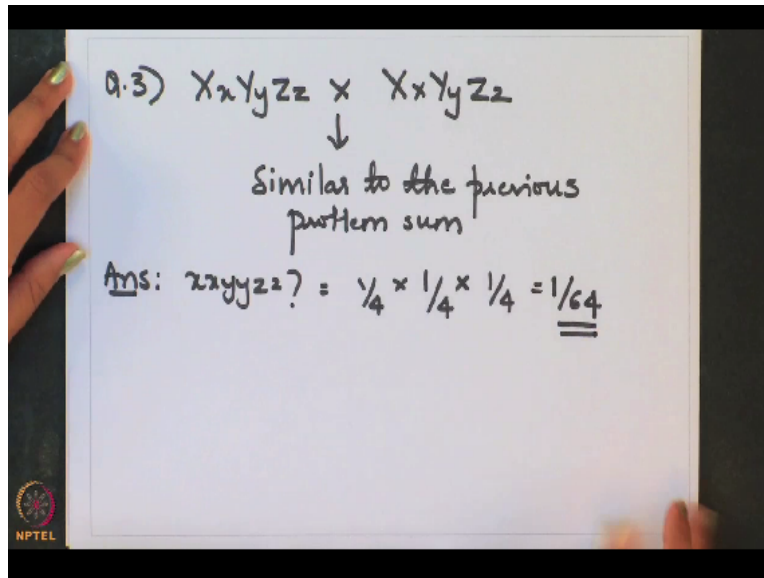 Q.3) XxYyZz x XxYyZz
↓
Similar to the previous
problem sum
Ans: xxyyzz? = 1/4 x 1/4 x 1/4 = 1/64
NPTEL